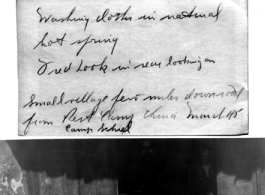 Washing cloths in natural
hot spring
Fred Cook in rear looking on
Small village few miles down road
from Rest Camp China March 45
Camp Schiel